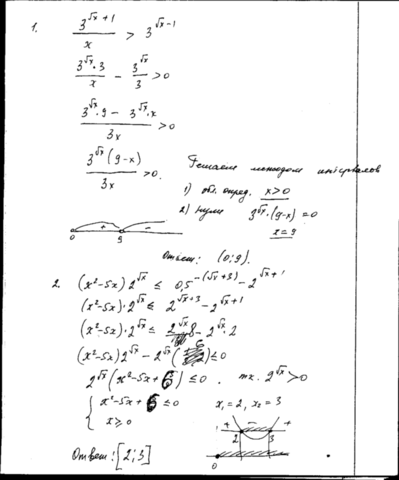 1. 3^{√x+1}/x > 3^{√x-1}
3^{√x}·3/x - 3^{√x}/3 > 0
3^{√x}·9 - 3^{√x}·x/3x > 0
3^{√x}(9-x)/3x > 0. Решаем методом интервалов
1) обл. опред. x>0
2) нули 3^{√x}·(9-x)=0
x=9
0 + 9 -
Ответ: (0;9).
2. (x²-5x)2^{√x} ≤ 0,5^{-(√x+3)} - 2^{√x+1}
(x²-5x)·2^{√x} ≤ 2^{√x+3} - 2^{√x+1}
(x²-5x)·2^{√x} ≤ 2^{√x}·8 - 2^{√x}·2
(x²-5x)2^{√x} - 2^{√x}( 6 ) ≤ 0
2^{√x}(x²-5x+6) ≤ 0. т.к. 2^{√x}>0
{ x²-5x+6 ≤ 0 x₁=2, x₂=3
x ≥ 0
+ - +
2 3
Ответ: [2;3]
0